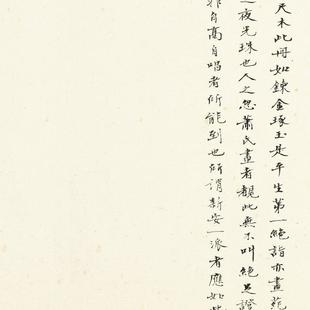 尺木此冊如鍊金琢玉是平生第一絕詣亦畫苑
夜光珠也人之忽蕭氏畫者觀此無不叫絕足證
非自高自唱者所能到也所謂新安一派者應如